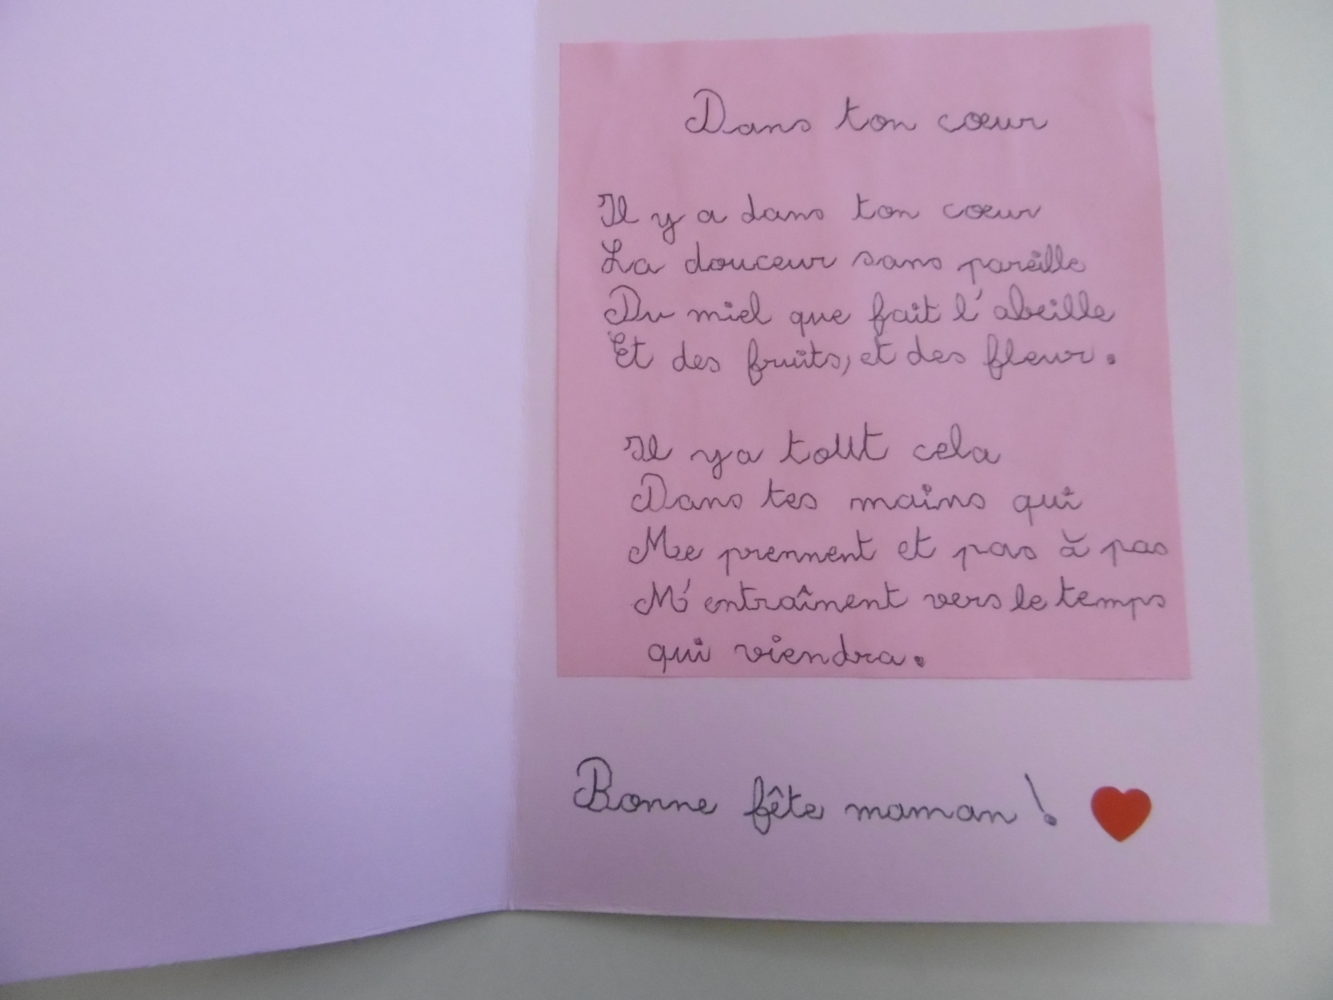 Dans ton cœur
Il y a dans ton cœur
La douceur sans pareille
Du miel que fait l'abeille
Et des fruits, et des fleur.
Il y a tout cela
Dans tes mains qui
Me prennent et pas à pas
M'entraînent vers le temps
qui viendra.
Bonne fête maman !